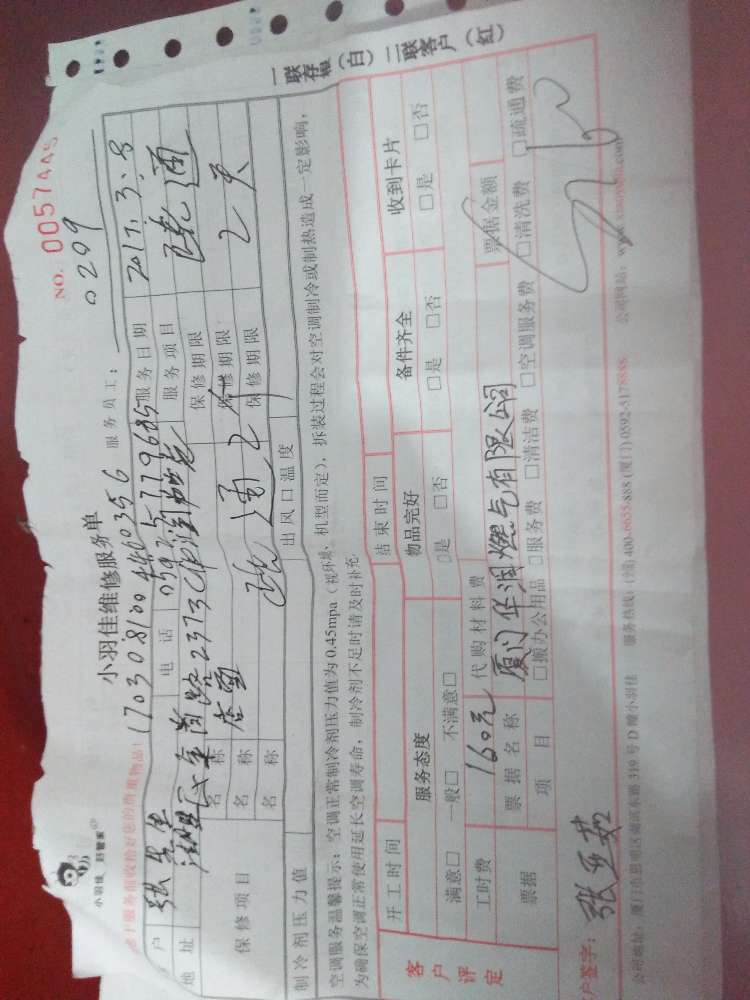 一联存根(白)二联客户(红)
NO. 0057445
0299
小羽佳 好管家
小羽佳维修服务单
服务员工:
请于服务前收拾好您的贵重物品!
1703081004460356
户 张先生 电话 0592-5779685 服务日期 2017.3.8
地址 服务项目 疏通
保修项目 名称 保修期限 2天
名称 保修期限
名称 疏通 保修期限
制冷剂压力值 出风口温度
空调服务温馨提示:空调正常制冷剂压力值为0.45mpa(视环境、机型而定),拆装过程会对空调制冷或制热造成一定影响,
为确保空调正常使用延长空调寿命,制冷剂不足时请及时补充
客户评定 开工时间 结束时间
服务态度 物品完好 备件齐全 收到卡片
满意□ 一般□ 不满意□ □是 □否 □是 □否 □是 □否
工时费 160元 代购材料费
票据 票据名称 厦门华润燃气有限公司 票据金额
项目 □搬办公用品 □服务费 □清洁费 □空调服务费 □清洗费 □疏通费
户签字:
公司地址:厦门市思明区湖滨东路319号D幢小羽佳 服务热线:(全国)400-6635-888 (厦门)0592-5178888 公司网站:www.xiaoyujia.com